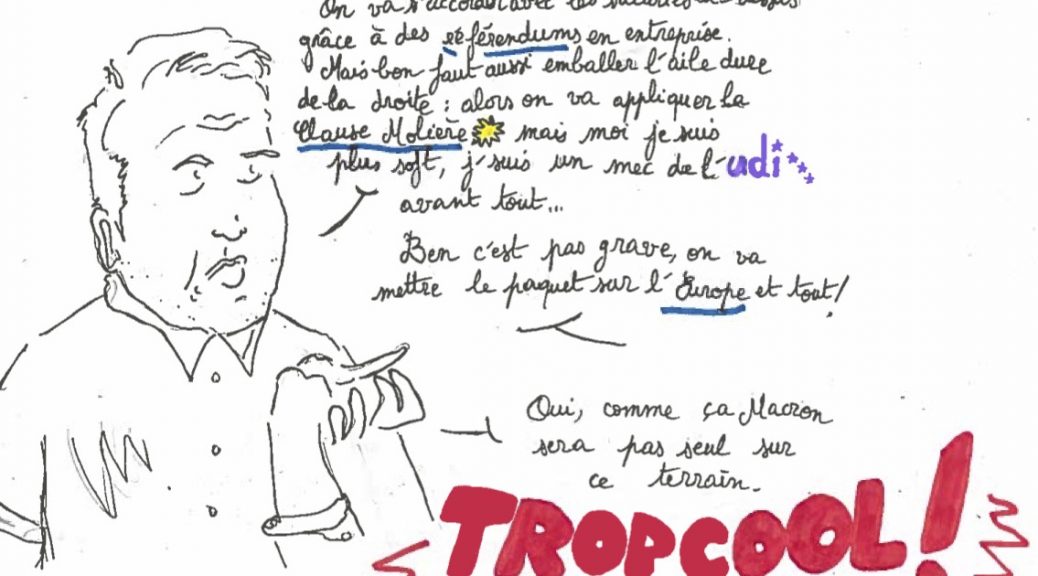 On va s'accorder avec les salariés là-dessus
grâce à des référendums en entreprise.
Mais bon faut aussi emballer l'aile dure
de la droite : alors on va appliquer la
Clause Molière mais moi je suis
plus soft, j'suis un mec de l'udi
avant tout...
Ben c'est pas grave, on va
mettre le paquet sur l'Europe et tout!
Oui, comme ça Macron
sera pas seul sur
ce terrain.
TROPCOOL!